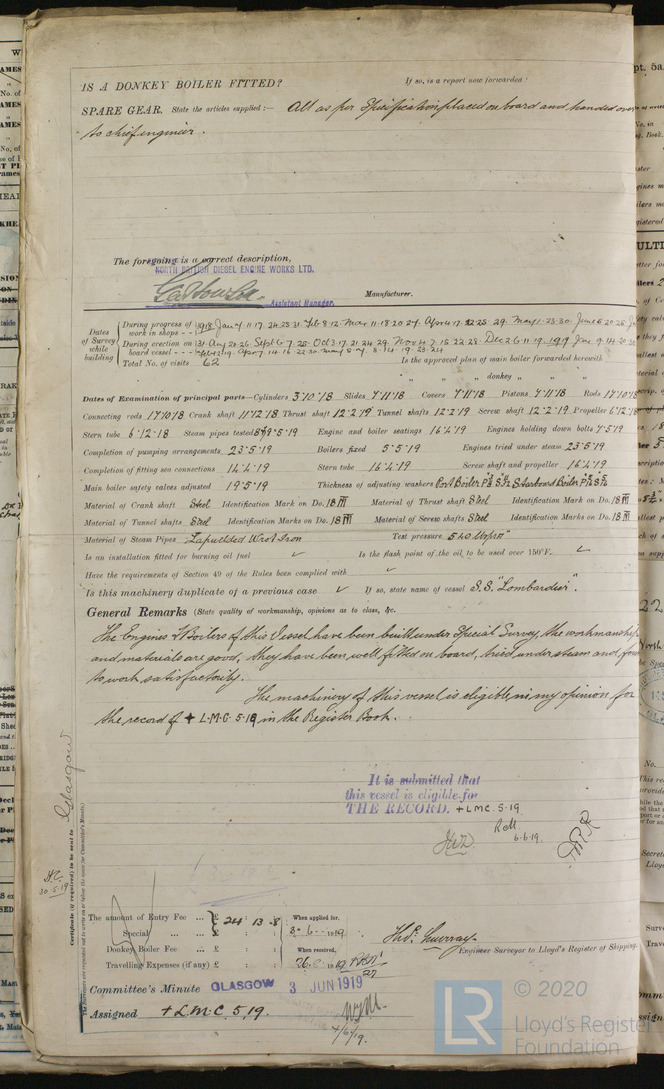 IS A DONKEY BOILER FITTED? If so, is a report now forwarded?
SPARE GEAR. State the articles supplied :— All as per Specification placed on board and handed over
to chief engineer.
The foregoing is a correct description,
NORTH BRITISH DIESEL ENGINE WORKS LTD.
Assistant Manager. Manufacturer.
Dates of Survey while building
During progress of work in shops - - 1918 Jan 4. 11. 17. 24. 28. 31. Feb 8. 12. Mar 11. 18. 20. 27. Apr 4. 17. 22. 25. 29. May 1. 23. 30. June 5. 20. 25.
During erection on board vessel - - - 31. Aug 20. 26. Sept 6. 7. 25. Oct 3. 17. 21. 24. 29. Nov 4. 7. 15. 22. 25. Dec 2. 6. 11. 19. 1919 Jan 9. 14. 20. 30
Feb 12. 19. Apr 7. 14. 16. 22. 30. May 5. 7. 8. 14. 19. 23. 24
Total No. of visits 62 Is the approved plan of main boiler forwarded herewith
" " " donkey " " "
Dates of Examination of principal parts—Cylinders 3·10·18 Slides 7·11·18 Covers 7·11·18 Pistons 7·11·18 Rods 17·10·18
Connecting rods 17·10·18 Crank shaft 11·12·18 Thrust shaft 12·2·19 Tunnel shafts 12·2·19 Screw shaft 12·2·19 Propeller 6·12·18
Stern tube 6·12·18 Steam pipes tested 8&9·5·19 Engine and boiler seatings 16·4·19 Engines holding down bolts 7·5·19
Completion of pumping arrangements 23·5·19 Boilers fixed 5·5·19 Engines tried under steam 23·5·19
Completion of fitting sea connections 14·4·19 Stern tube 16·4·19 Screw shaft and propeller 16·4·19
Main boiler safety valves adjusted 19·5·19 Thickness of adjusting washers Port Boiler Starboard Boiler
Material of Crank shaft Steel Identification Mark on Do. 18 Material of Thrust shaft Steel Identification Mark on Do. 18
Material of Tunnel shafts Steel Identification Marks on Do. 18 Material of Screw shafts Steel Identification Marks on Do. 18
Material of Steam Pipes Lapwelded Wrot Iron Test pressure 540 lbs
Is an installation fitted for burning oil fuel ✓ Is the flash point of the oil to be used over 150°F. ✓
Have the requirements of Section 49 of the Rules been complied with ✓
Is this machinery duplicate of a previous case ✓ If so, state name of vessel S.S. "Lombardier".
General Remarks (State quality of workmanship, opinions as to class, &c.
The Engines & Boilers of this Vessel have been built under Special Survey, the workmanship
and materials are good, they have been well fitted on board, tried under steam and found
to work satisfactorily.
The machinery of this vessel is eligible in my opinion for
the record of + L.M.C. 5.19 in the Register Book.
It is submitted that
this vessel is eligible for
THE RECORD. + LMC. 5.19.
6.6.19.
Glasgow
Certificate (if required) to be sent to
30.5.19
The amount of Entry Fee ... £ 24 : 13 : 8 When applied for,
Special ... ... £ : : 3 - 6 - 1919
Donkey Boiler Fee ... £ : : When received,
Travelling Expenses (if any) £ : :
Thos. Murray
Engineer Surveyor to Lloyd's Register of Shipping.
Committee's Minute GLASGOW 3 JUN 1919
Assigned + L.M.C. 5.19.
7/6/19.
LR © 2020
Lloyd's Register
Foundation